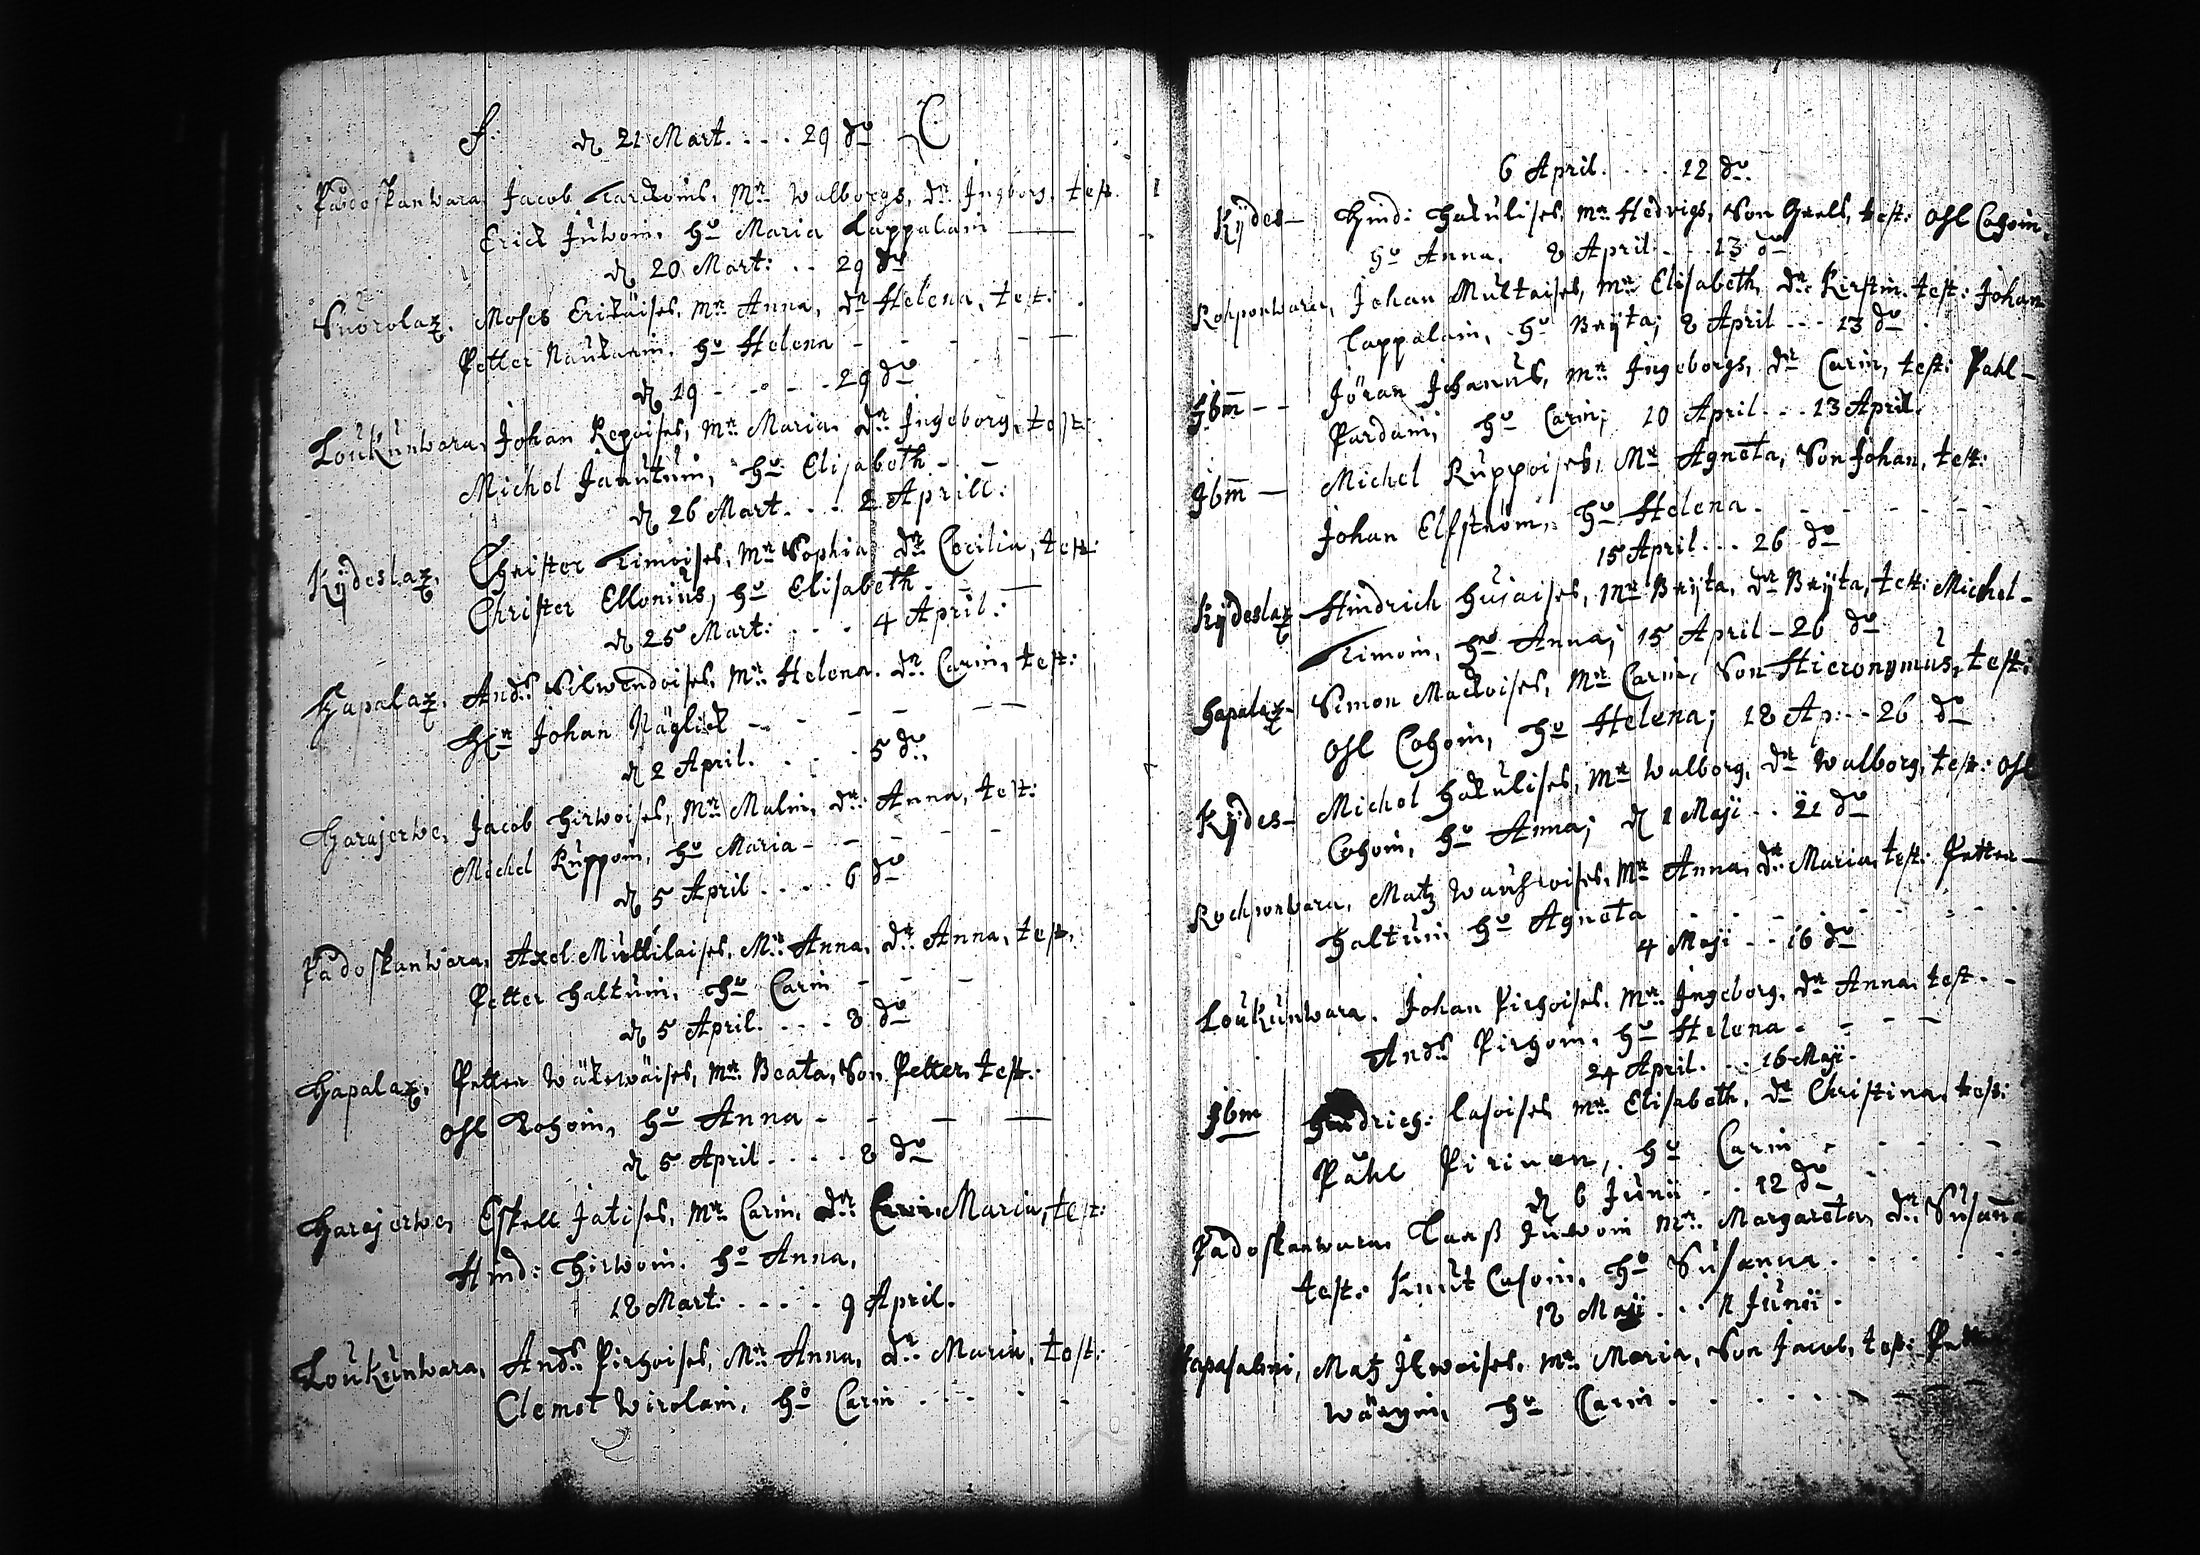 f: d 21 Mart. . . . 29 do C
Padoskanwara, Jacob Karckoins, Mr Walborgs, dr Ingborg, test.
Erick Juwoin, ho Maria Lappalain
d 20 Mart: . . 29 do
Suorolax. Moses Erikäises, Mr Anna, dr Helena, test:
Petter Naukarin, ho Helena - - - -
d 19 - - - - 29 do
Loukunwara, Johan Repoises, Mr Maria, dr Ingeborg, test:
Michel Jakutuin, ho Elisabeth - -
d 26 Mart. . . . 2 Aprill:
Kÿdeslax, Christer Timoises, Mr Sophia, dr Cecilia, test:
Christer Ellonius, ho Elisabeth - -
d 25 Mart: . . . 4 April:
Hapalax, Anders Silwendoises, Mr Helena, dr Carin, test:
Hr Johan Näglick - - - -
d 2 April. . . . 5 do.
Harajerwe, Jacob Hirwoises, Mr Malin, dr Anna, test:
Michel Ruppoin, ho Maria - - - - -
d 5 April . . . . 6 do
Padoskanwara, Axel Muttilaises, Mr Anna, dr Anna, test.
Petter Haltuin, ho Carin - - -
d 5 April. . . . 8 do
Hapalax, Petter Wäkewäises, Mr Beata, Son Petter, test:
Ohl Kohoin, ho Anna - - - -
d 5 April . . . . 8 do
Harajerwe, Eskell Jatises, Mr Carin, dr Maria, test:
Hind: Hirwoin. ho Anna,
18 Mart: . . . . 9 April.
Loukunwara, Anders Pirhoises, Mr Anna, dr Maria, test:
Clemet Wirolain, ho Carin . . . . -
6 April. . . . 12 do.
Kÿdes- Hind: Hakulises, Mr Hedvigs, Son Grels, test: Ohl Cohoin,
ho Anna. 8 April . . . 13 do
Rohponwara, Johan Multaises, Mr Elisabeth, dr Kirstin, test: Johan
Lappalain, ho Brÿta; 8 April - - - 13 do
Ibm - - Jöran Johanus, Mr Ingeborgs, dr Carin, test: Pahl-
Pardain, ho Carin; 10 April - - 13 April.
Ibm - Michel Ruppoises, Mr Agneta, Son Johan, test:
Johan Elfström, ho Helena - - - - - -
15 April . . . 26 do
Kÿdeslax Hindrich Husaises, Mr Brÿta, dr Brÿta, test: Michel-
Timoin, ho Anna; 15 April - 26 do
Hapalax- Simon Mackoises, Mr Carin, Son Hieronymus, test:
Ohl Cohoin, ho Helena; 18 Ap: - - 26 do
Kÿdes- Michel Hakulises, Mr Walborg, dr Walborg, test: Ohl
Cohoin, ho Anna; d 1 Maji . . 21 do
Rochponwara, Matz Mr Anna, dr Maria, test: Petter-
Haltuin ho Agneta - - - - - -
4 Maji - - 16 do
Loukunwara. Johan Pirhoises, Mr Ingeborg, dr Anna, test. -
Anders Pirhoin, ho Helena - - - -
24 April. . . 16 Maji.
Ibm Hindrich: Casoises Mr Elisabeth, dr Christina, test:
Påhl Pirinen, ho Carin - - - - -
d 6 Junii . . . 12 do
Padoskanwara, Larss Juwoin Mr Margareta, dr Susana
test: Knut Casoin, ho Susanna . . . . .
18 Maji . . . 11 Junii.
Matz Ilwoises, Mr Maria, Son Jacob, test:
ho Carin . . . . . .